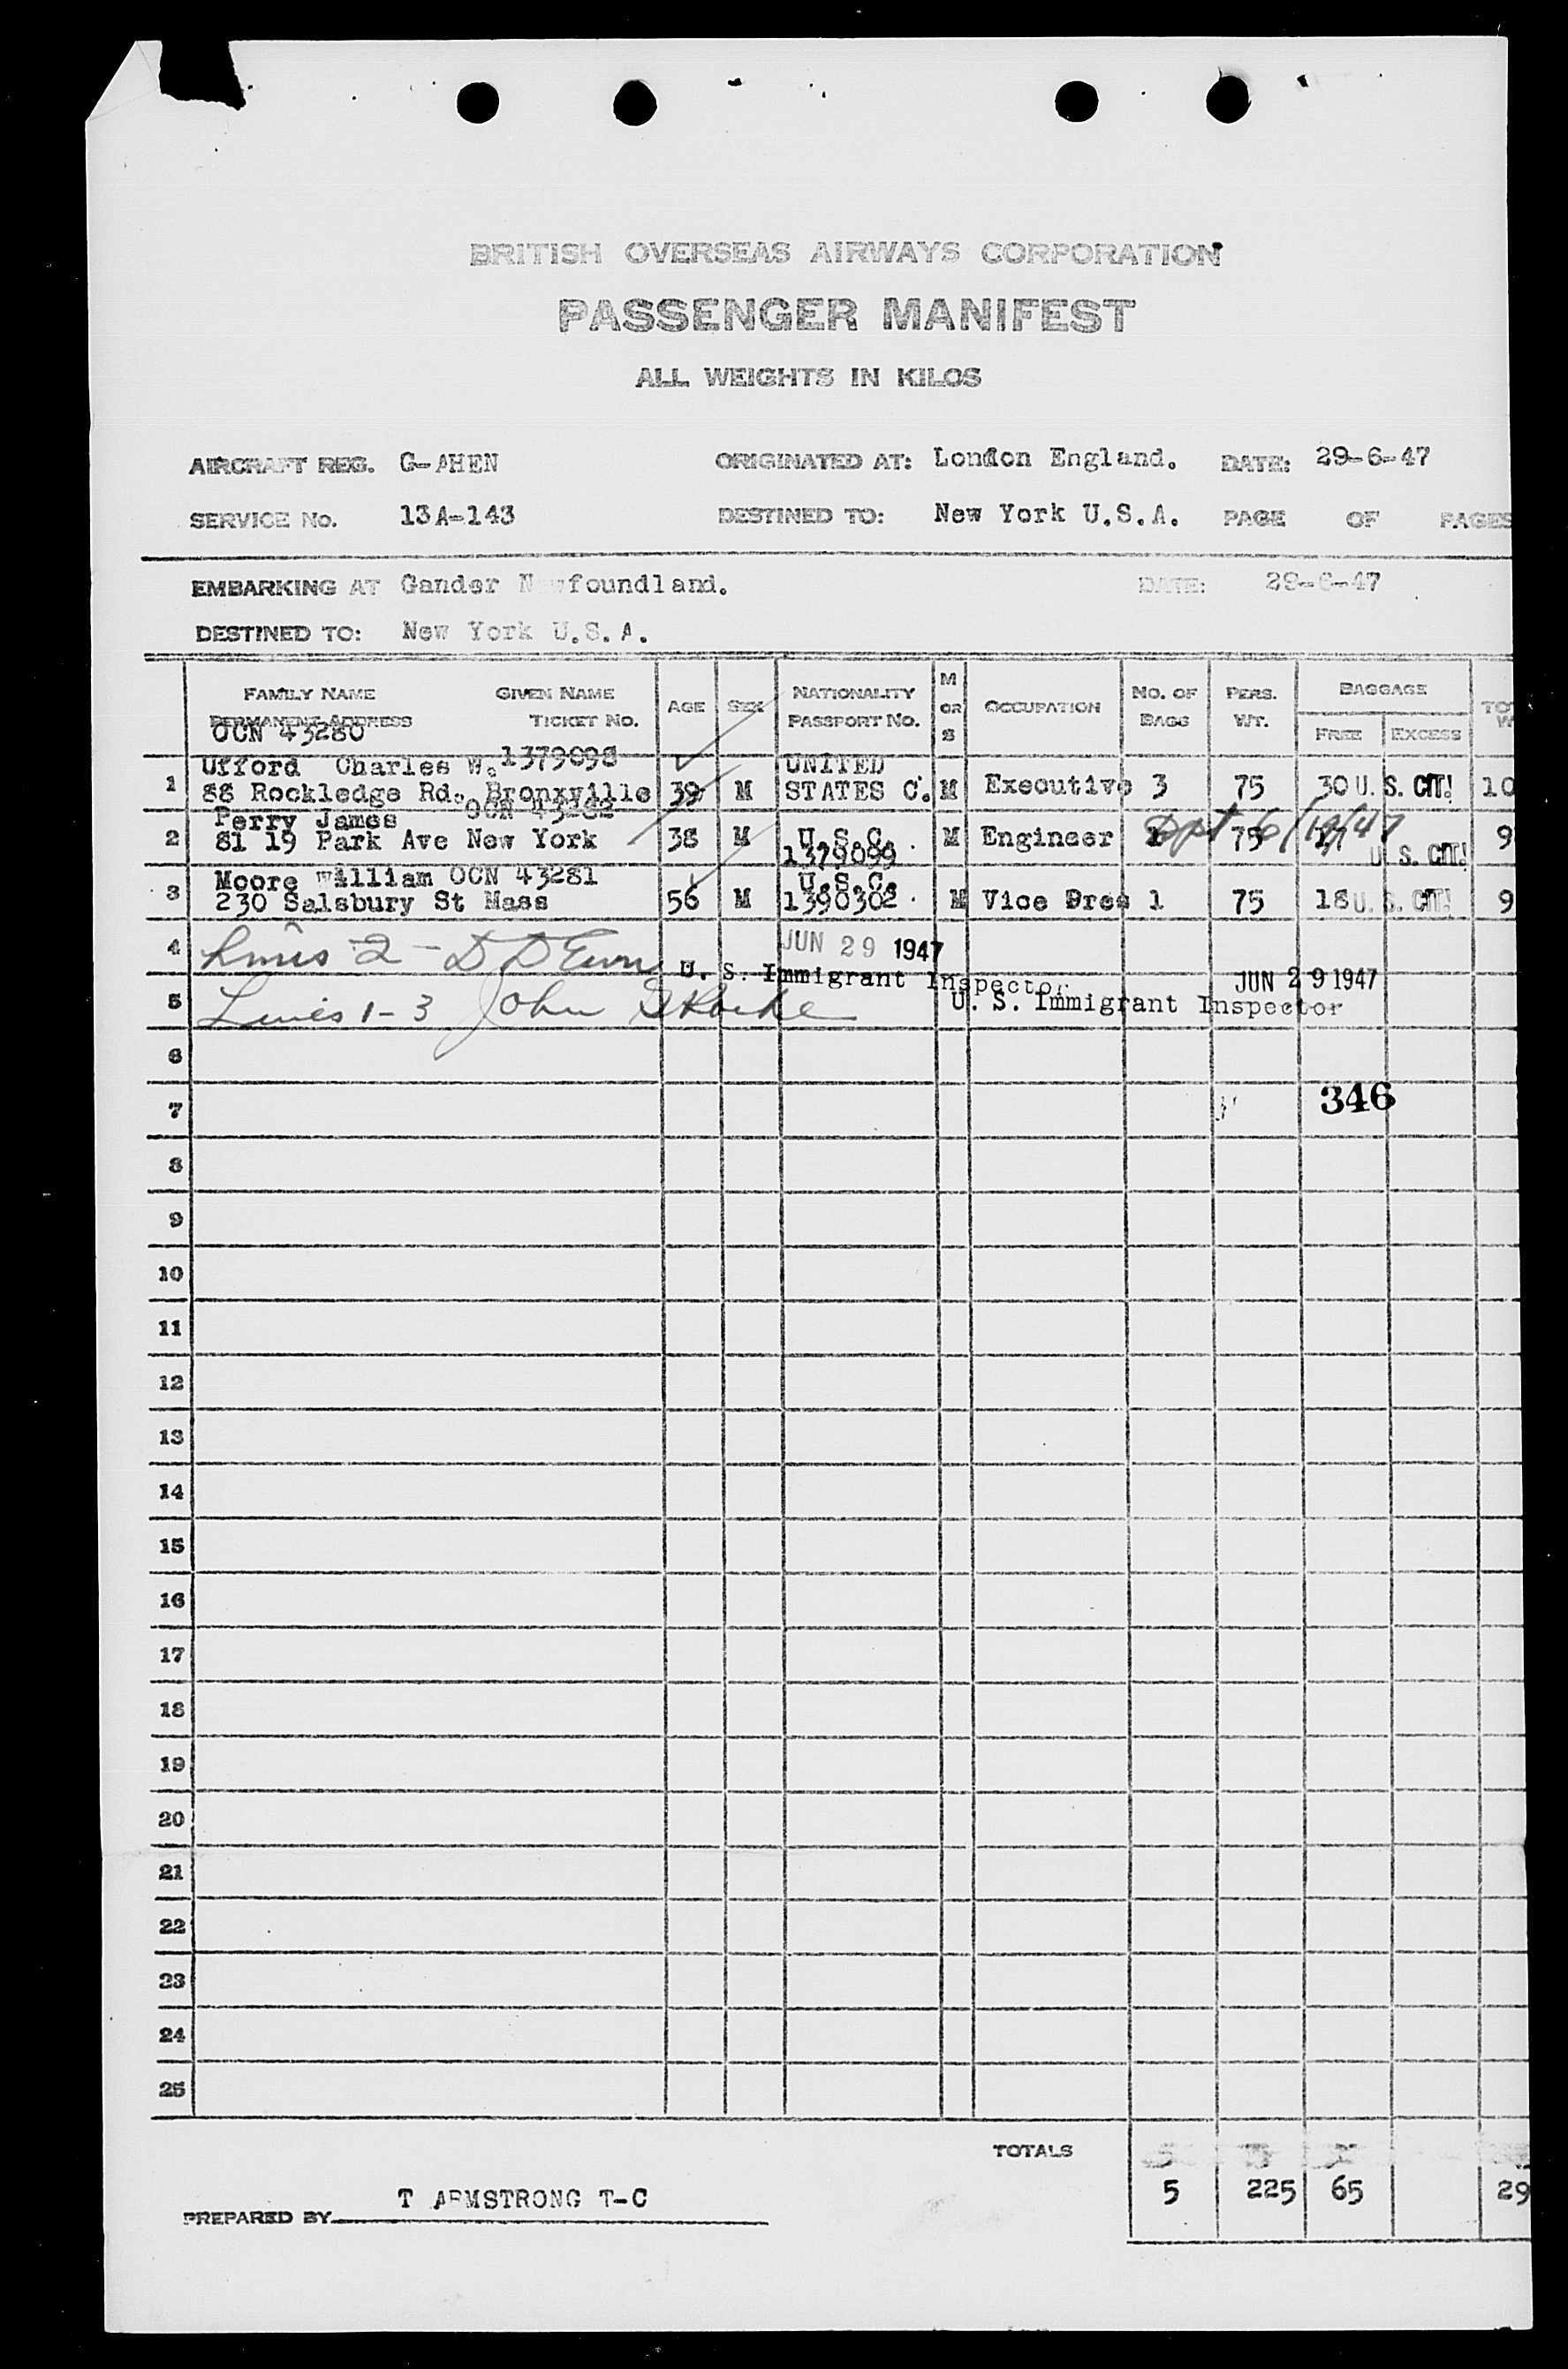 BRITISH OVERSEAS AIRWAYS CORPORATION
PASSENGER MANIFEST
ALL WEIGHTS IN KILOS
AIRCRAFT REG. G-AHEN ORIGINATED AT: London England. DATE: 29-6-47
SERVICE No. 13A-143 DESTINED TO: New York U.S.A. PAGE OF PAGES
EMBARKING AT Gander Newfoundland. DATE: 29-6-47
DESTINED TO: New York U.S.A.
FAMILY NAME GIVEN NAME AGE SEX NATIONALITY M OR S OCCUPATION NO. OF BAGS PERS. WT. BAGGAGE
PERMANENT ADDRESS TICKET NO. PASSPORT NO. FREE EXCESS
OCN 43280
Ufford Charles W. 1379098 UNITED
1 88 Rockledge Rd. Bronxville 39 M STATES C. M Executive 3 75 30 U. S. CIT. 10
Perry James OCN 43282
2 81 19 Park Ave New York 38 M U.S.C. M Engineer 1 75 17 9
Dpt 6/19/47
1379099 U. S. CIT.
Moore William OCN 43281 U.S.C.
3 230 Salsbury St Mass 56 M 1390302 M Vice Pres 1 75 18 U. S. CIT. 9
4 Lines 2 - D D JUN 29 1947
U. S. Immigrant Inspector JUN 29 1947
5 Lines 1-3 John U. S. Immigrant Inspector
6
7 346
8
9
10
11
12
13
14
15
16
17
18
19
20
21
22
23
24
25
TOTALS
5 225 65 29
PREPARED BY T ARMSTRONG T-C